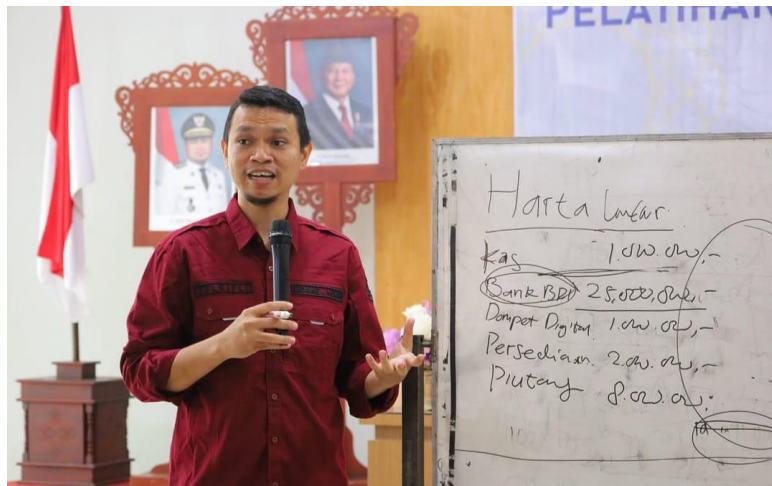 PELATIHAN
Harta Lancar
Kas 1.000.000,-
Bank BRI 25,000,000,-
Dompet Digital 1.000.000,-
Persediaan 2.000.000,-
Piutang 8.000.000,-